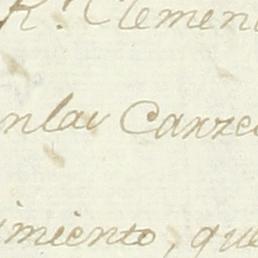 R.l Clemen
en las Carze
imiento, que